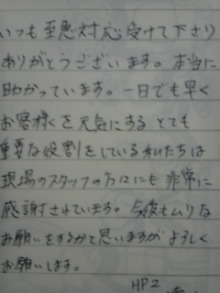 いつも至急対応受けて下さり
ありがとうございます。本当に
助かっています。一日でも早く
お客様を元気にするとても
重要な役割をしている私たちは
現場のスタッフの方々にも非常に
感謝されています。今後もムリな
お願いをするかと思いますがよろしく
お願いします。
HP2